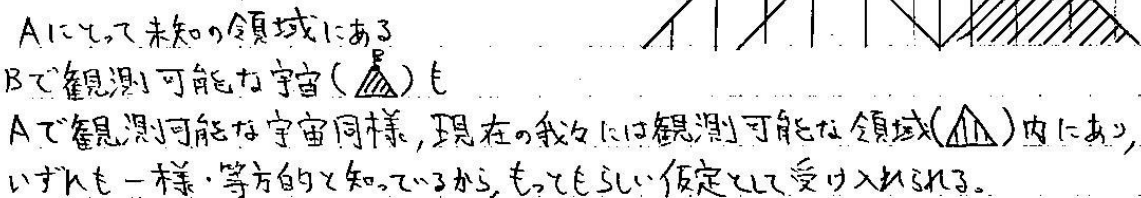 Aにとって未知の領域にある
Bで観測可能な宇宙(B)も
Aで観測可能な宇宙同様,現在の我々には観測可能な領域( )内にあり,
いずれも一様・等方的と知っているから,もっともらしい仮定として受け入れられる。